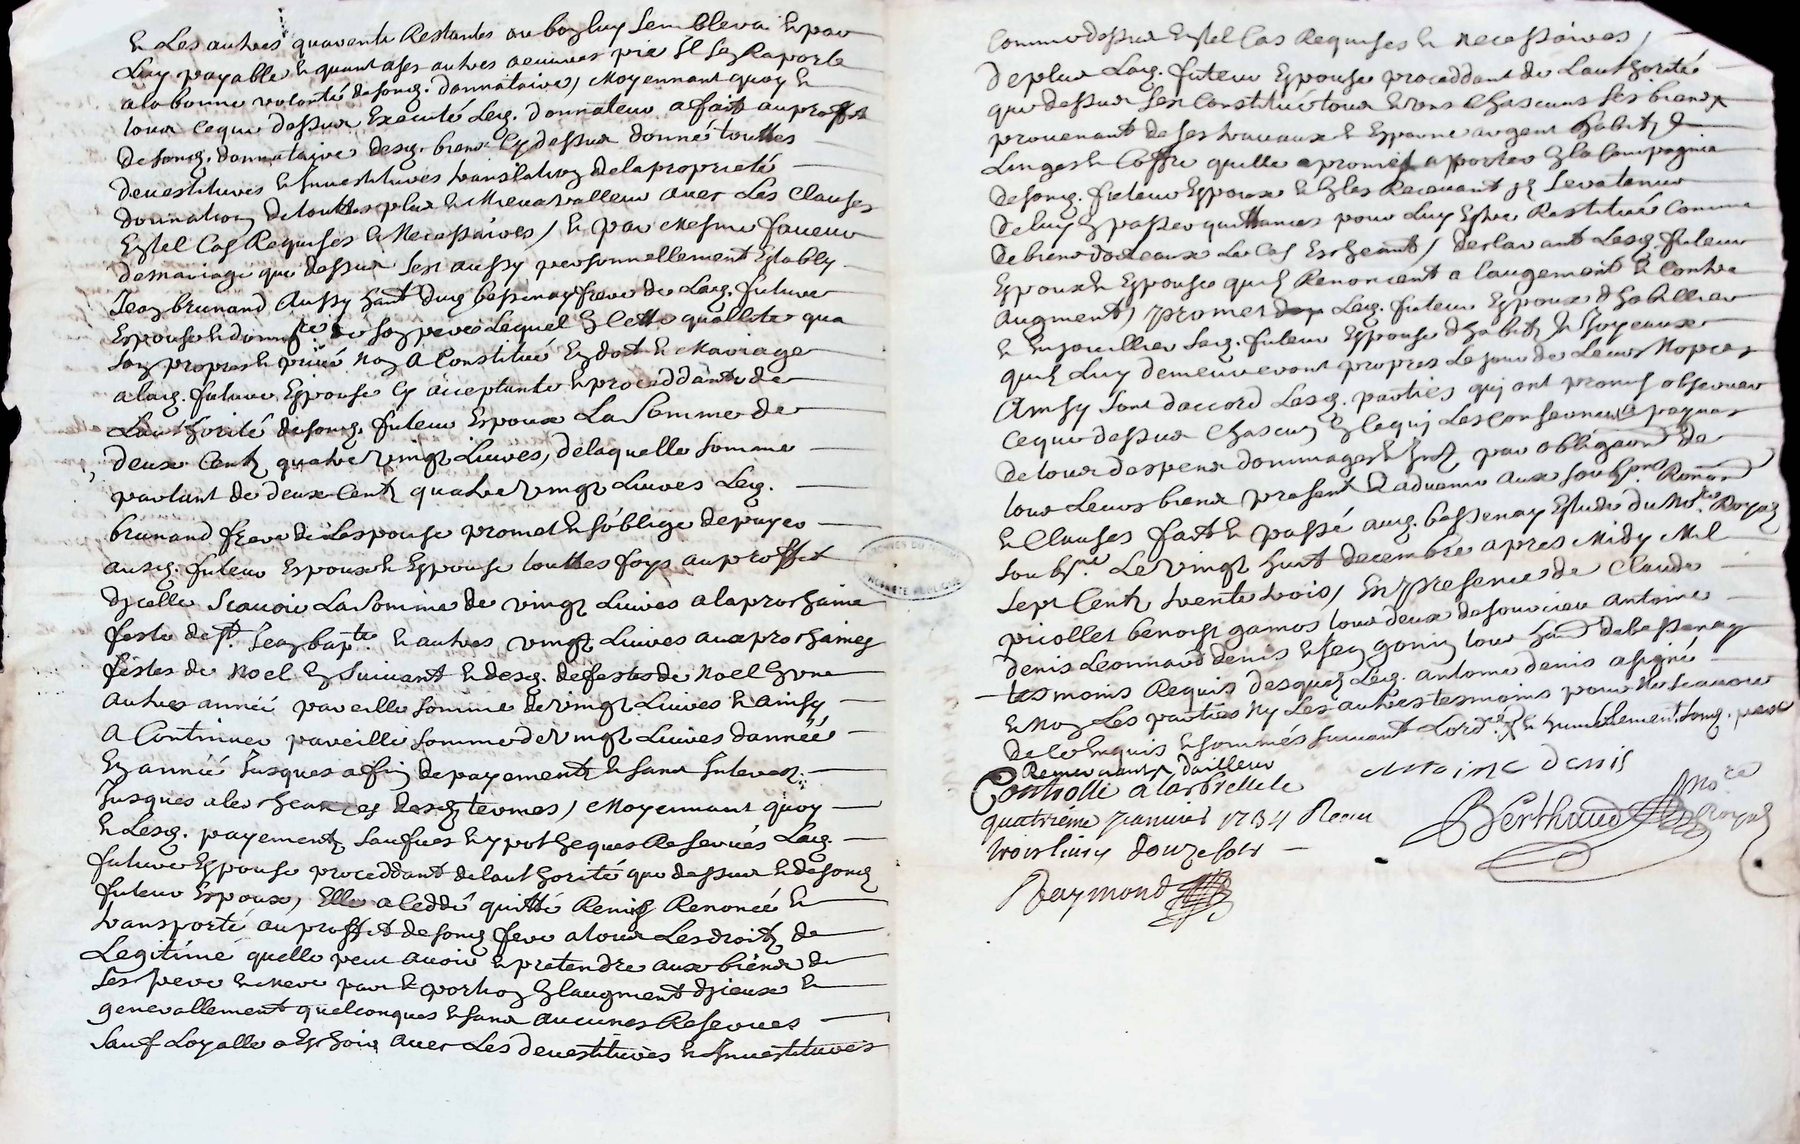 & Les autres quarente Restantes on bon luy semblera & par
Luy payable & quant a ses autres oeuvres pies Il s'en Raporte
a la bonne volonté de sond. donnataire, Moyennant quoy &
tout ce que dessus Execute Led. donnateur a fait au proffit
de sond. donnataire desd. biens Cy dessus donné touttes
devestitures & Investitures translation de la proprieté
donnation de touttes plus & Mieux valleur avec Les Clauses
En tel Cas Requises & Necessaires, & par Mesme faveur
de mariage que dessus sest aussy personnellement Estably
Jean brunand Aussy hant dud bessenay frere de Lad. future
Espouse & donn.re de son pere Lequel En Cette quallite qua
son propre & privé Nom A Constitué En dot & Mariage
a lad. future Espouse Cy acceptante & proceddante de
Lauthorité de sond. futeur Espoux La Somme de
deux Cents quatre vingt Livres, de laquelle somme
partant de deux Cents quatre vingt Livres Led.
brunand frere de Lespouse promet & soblige de payer
aud. futeur Espoux & Espouse touttes foys au proffit
dicelle Scavoir La Somme de vingt Livres a la prochaine
feste de st. Jean bapte. & autres vingt Livres aux prochaines
festes de Noel En Suivant & desd. de festes de Noel En une
autres année pareille somme de vingt Livres & ainsy
A Continuer pareille somme de vingt Livres dannéé
En année Jusques a fin de payements & sans Interest
Jusques a les cheances desd termes, Moyennant quoy
& Lesd. payements saufues & ypotheques Reservés Lad.
future Espouse proceddant de lauthorité que dessus & de sond
futeur Espoux, Elle a Ceddé quitté Remis Renoncé &
transporté au proffit de sond frere a tous Les droits de
Legitime quelle peut avoir & pretendre aux biens de
Ses pere & mere part & portion En laugment dyceux &
generallement quelconques & sans aucunes Reserves
Sauf Loyalle eschoite avec Les devestitures & Investitures
Comme dessus En tel Cas Requises & necessaires,
De plus Lad. futeur Espouse proceddant de Lauthorité
que dessus Sest Constitué tous & uns Chascuns ses biens
provenant de ses travaux & Espargne argent habits &
Linges & Coffre quelle a promis apporter En la Compagnie
de sond. futeur Espoux & En les Recevant Il sera tenu
de luy En passer quittances pour Luy Estre Restitué Comme
de biens dotteaux Le Cas Escheant, declarant Lesd. futeur
Espoux & Espouse quils Renoncent a laugement & Contre
Augment, promet Led. futeur Espoux dhabillier
& Enjoaillier Lad. futeur Espouse dhabits & Joyeaux
quels Luy demeureront propres Le jour de Leurs Nopces
Ainsy sont daccord Lesd. parties quj ont promis observer
ce que dessus Chascun En ce quj Les Conserne & payer
de tous despens dommages & Jnts par obligaon de
tous Leurs biens present & advenir aux soubsnes Renons
& Clauses fait & passé aud. bessenay Estude du Nore. Royal
soubsné Le vingt huit decembre apres Midy Mil
Sept Cents trente trois, En presence de Claude
picollet benoist gamos tous deux de sourcieu antoine
denis Leonnard denis & Jean gonin tous hants de bessenay
tesmoins Requis desquels Led. antoine denis a signé
& Non Les parties Ny Les autres tesmoins pour Ne scavoir
de ce Enquis & sommés suivant Lorde. & humblement sond. pere
Remerciant dailleur
Antoine Denis
Controllé a larbrelle le
quatrieme Janvier 1734 Receu
trois livres douze sols
Berthaud Nore Royal
Raymond